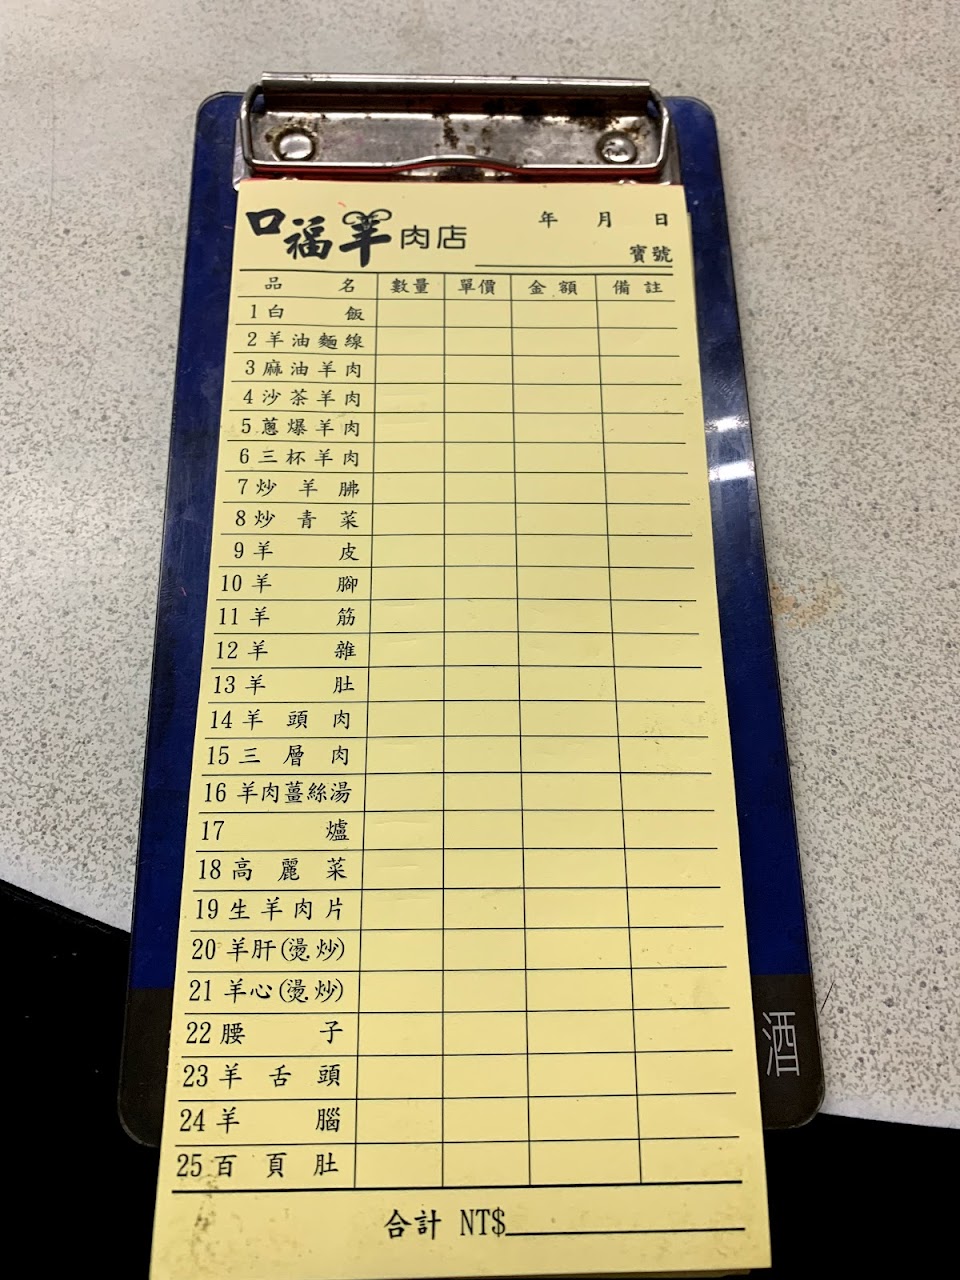 口福羊肉店 年 月 日
寶號
品名 數量 單價 金額 備註
1 白飯
2 羊油麵線
3 麻油羊肉
4 沙茶羊肉
5 蔥爆羊肉
6 三杯羊肉
7 炒羊胇
8 炒青菜
9 羊皮
10 羊腳
11 羊筋
12 羊雜
13 羊肚
14 羊頭肉
15 三層肉
16 羊肉薑絲湯
17 爐
18 高麗菜
19 生羊肉片
20 羊肝(燙.炒)
21 羊心(燙.炒)
22 腰子
23 羊舌頭
24 羊腦
25 百頁肚
合計 NT$
酒